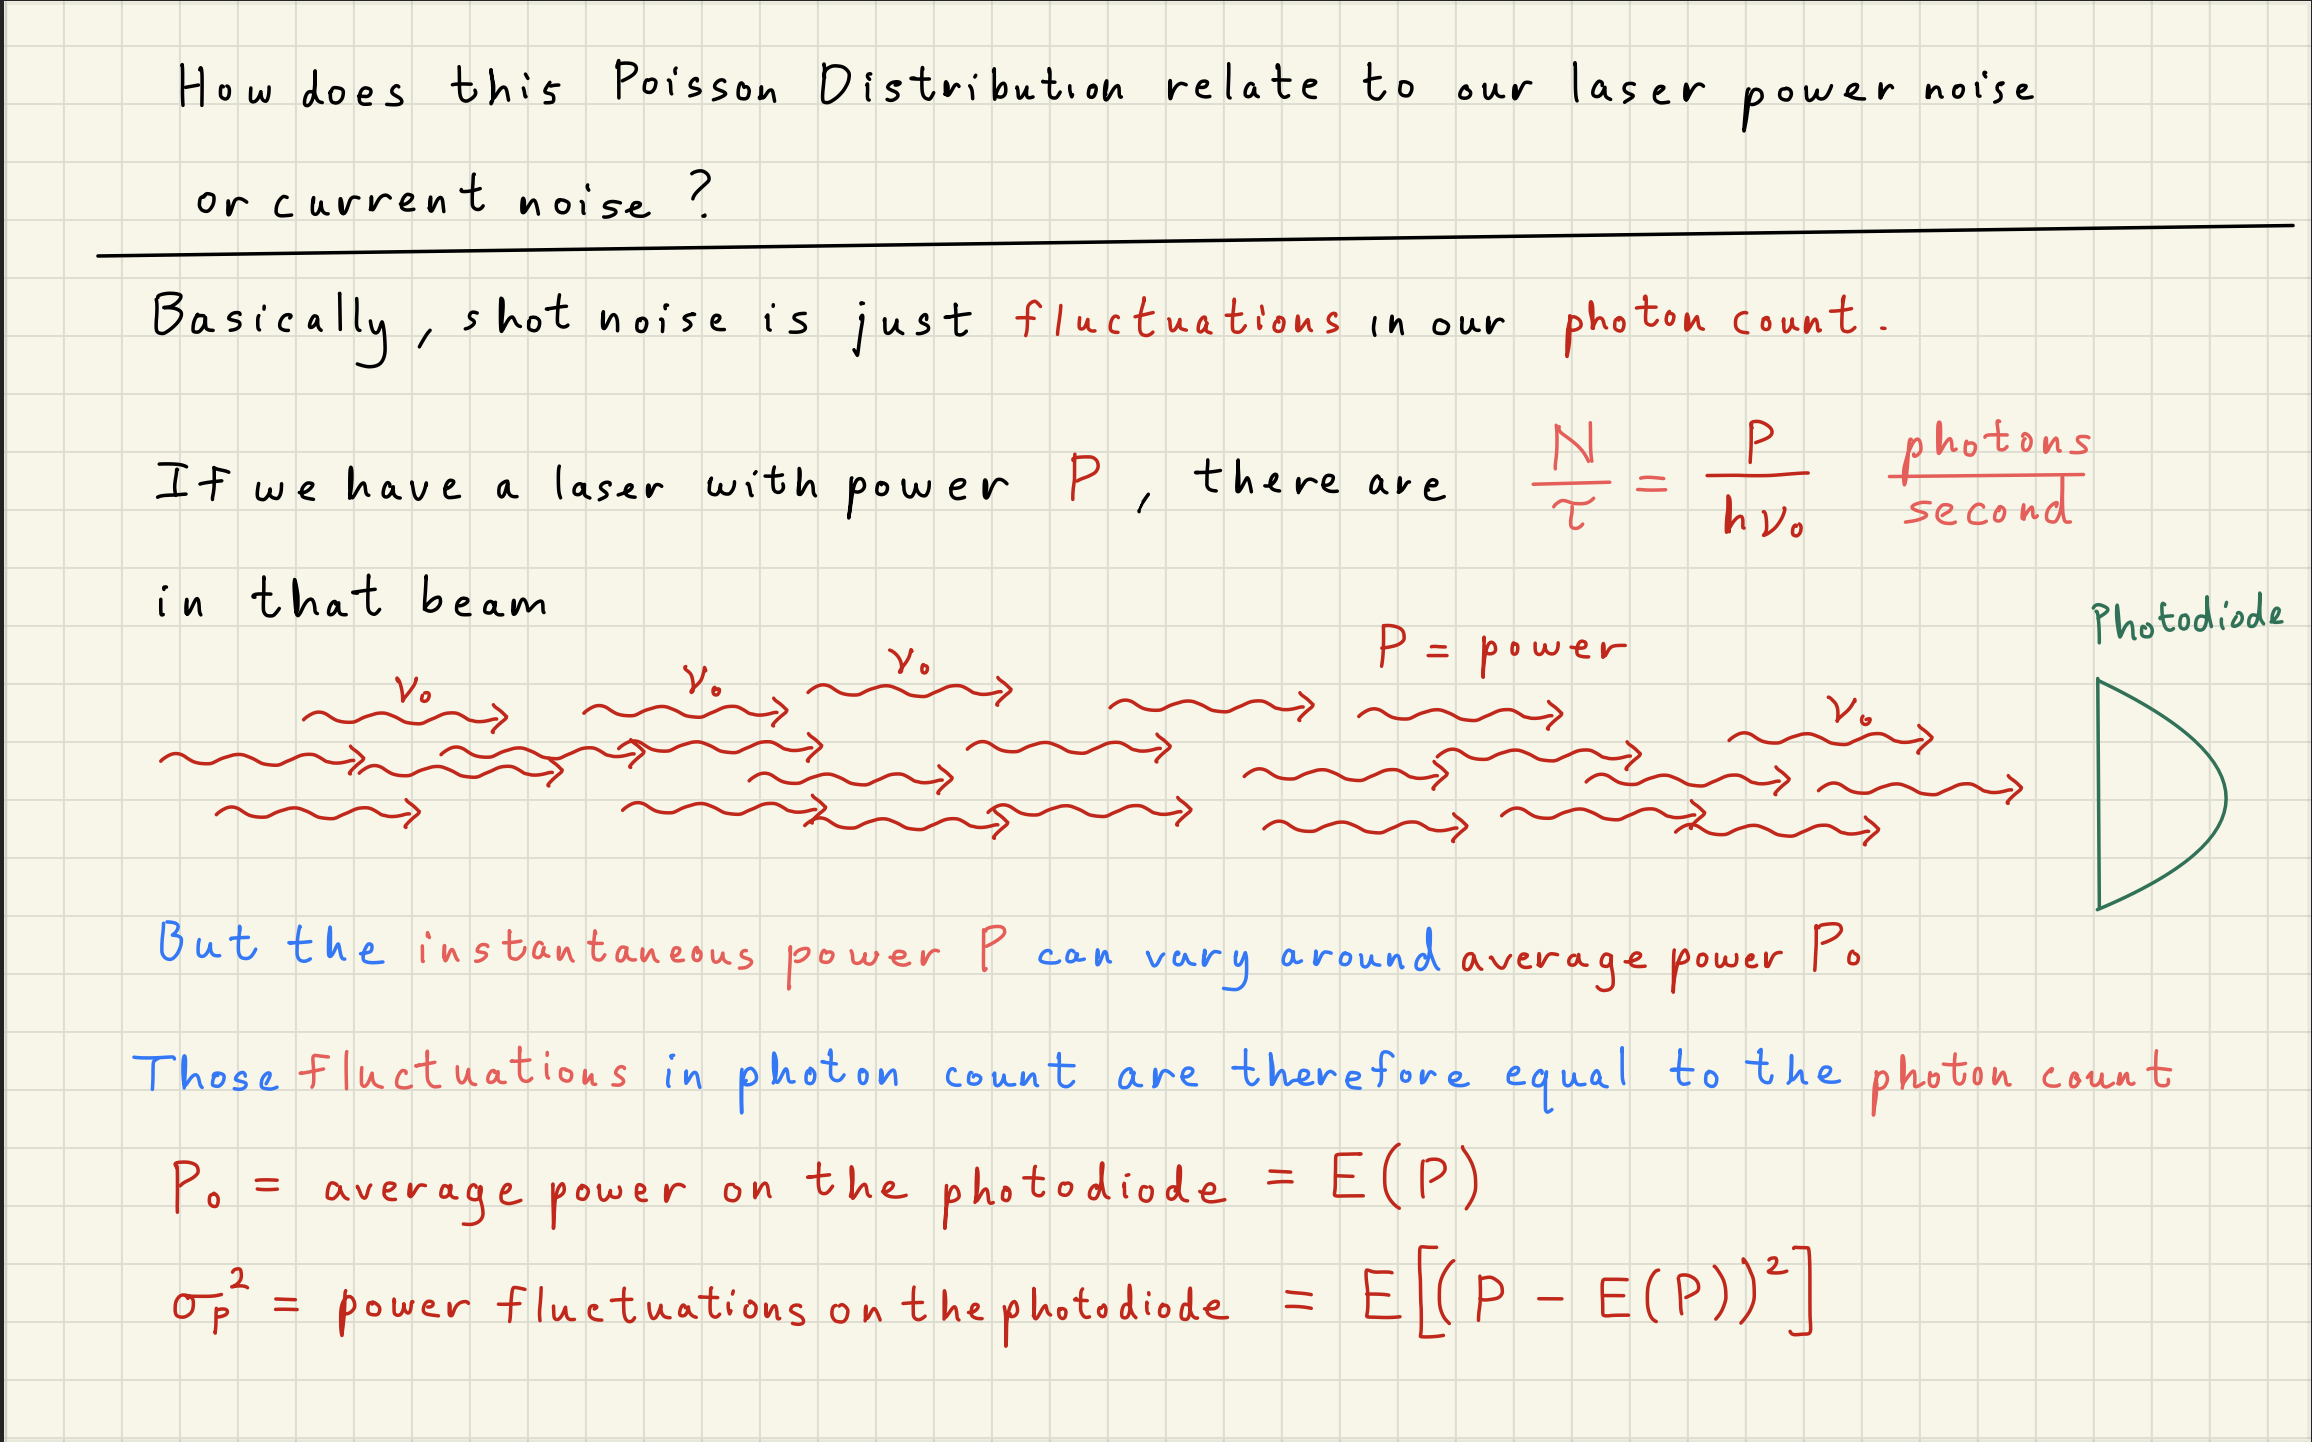 How does this Poisson Distribution relate to our laser power noise
or current noise ?
Basically, shot noise is just fluctuations in our photon count.
If we have a laser with power P, there are N/τ = P/hν₀ photons/second
in that beam
Photodiode
P = power
ν₀ ν₀ ν₀ ν₀
But the instantaneous power P can vary around average power P₀
Those fluctuations in photon count are therefore equal to the photon count
P₀ = average power on the photodiode = E(P)
σₚ² = power fluctuations on the photodiode = E[(P - E(P))²]